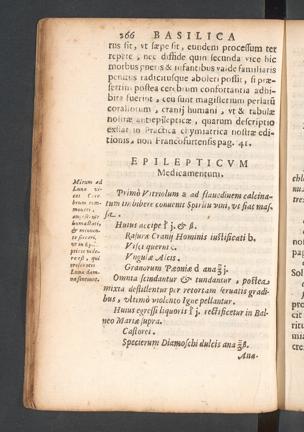 266 BASILICA
rus sit, vt sæpe sit, eundem processum ter
repete, nec diffide quin secunda vice hic
morbus pueris & infantibus valde familiaris
penitus radicitusque aboleri possit, si præ-
sertim postea cerebrum confortantia adhi-
bita fuerint, ceu sunt magisterium perlarũ
coraliorum, cranij humani, vt & tabulæ
nostræ antiepilepticæ, quarum descriptio
extat in Practica chymiatrica nostræ edi-
tionis, non Francofurtensis pag. 41.
EPILEPTICVM
Medicamentum.
Primò Vitriolum 2 ad flauedinem calcina-
tum imbibere conuenit Spiritu vini, vt fiat mas-
sa.
Huius accipe ℔ j. & ß.
Rasuræ Cranij Hominis iustificati
Visci quercni
Vngulæ Alcis.
Granorum Pæoniæ ana ℥ j.
Omnia scindantur & tundantur, postea
mixta destillentur per retortam seruatis gradi-
bus, vltimò violento Igne pellantur.
Huius egressi liquoris ℔ j. rectificetur in Bal-
neo Mariæ supra.
Castorei.
Specierum Diamoschi dulcis ana ℥ß.
Ana-
Mirum ad
Luna